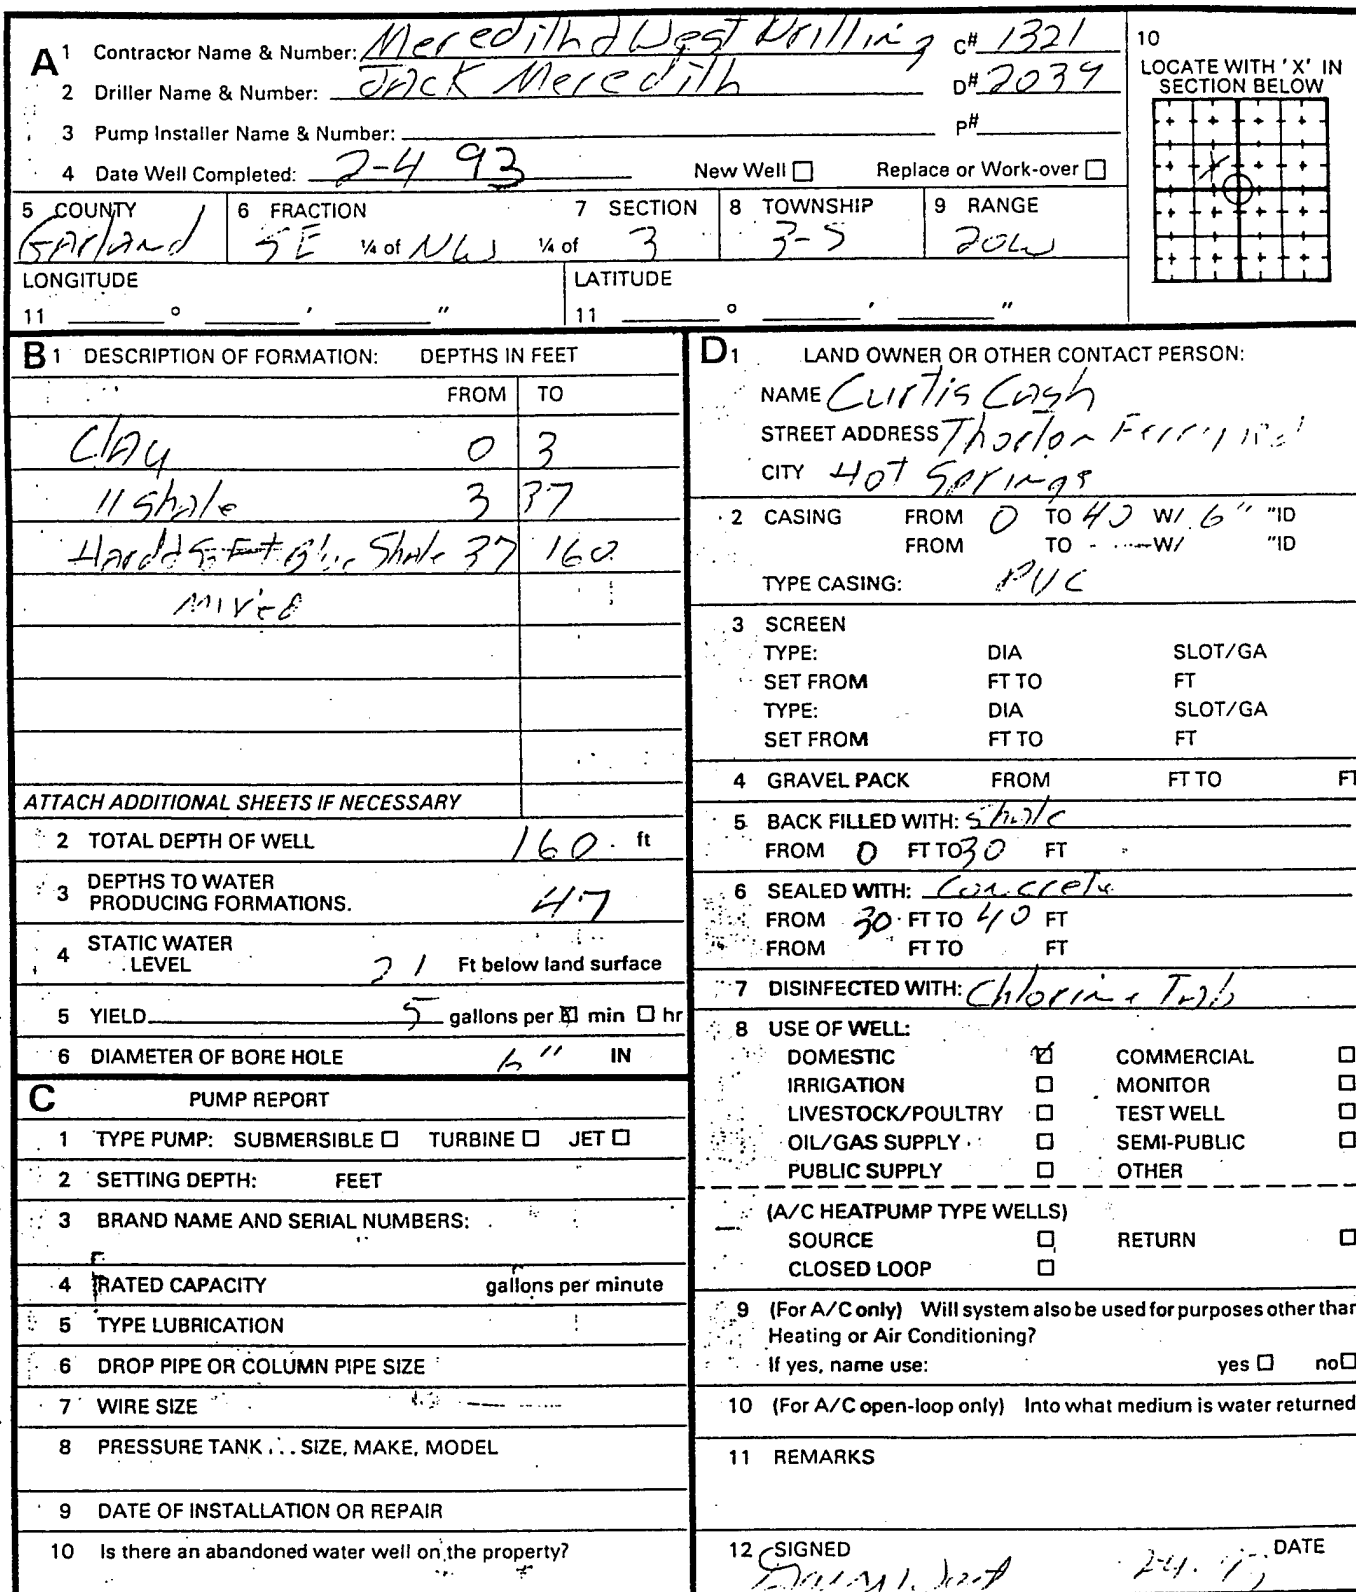 A 1 Contractor Name & Number: Meredith & West Drilling C# 1321
2 Driller Name & Number: Jack Meredith D# 2039
3 Pump Installer Name & Number: P#
4 Date Well Completed: 2-4 93 New Well ☐ Replace or Work-over ☐
10
LOCATE WITH 'X' IN
SECTION BELOW
X
5 COUNTY 6 FRACTION 7 SECTION 8 TOWNSHIP 9 RANGE
Garland SE ¼ of NW ¼ of 3 3-S 20W
LONGITUDE LATITUDE
11 ° ' " 11 ° ' "
B 1 DESCRIPTION OF FORMATION: DEPTHS IN FEET
FROM TO
Clay 0 3
11 Shale 3 37
Hard & Soft Blue Shale 37 160
Mixed
ATTACH ADDITIONAL SHEETS IF NECESSARY
2 TOTAL DEPTH OF WELL 160. ft
3 DEPTHS TO WATER
PRODUCING FORMATIONS. 47
4 STATIC WATER
LEVEL 21 Ft below land surface
5 YIELD 5 gallons per ☒ min ☐ hr
6 DIAMETER OF BORE HOLE 6" IN
C PUMP REPORT
1 TYPE PUMP: SUBMERSIBLE ☐ TURBINE ☐ JET ☐
2 SETTING DEPTH: FEET
3 BRAND NAME AND SERIAL NUMBERS:
4 RATED CAPACITY gallons per minute
5 TYPE LUBRICATION
6 DROP PIPE OR COLUMN PIPE SIZE
7 WIRE SIZE
8 PRESSURE TANK ... SIZE, MAKE, MODEL
9 DATE OF INSTALLATION OR REPAIR
10 Is there an abandoned water well on the property?
D 1 LAND OWNER OR OTHER CONTACT PERSON:
NAME Curtis Cash
STREET ADDRESS Thorton Ferry Rd
CITY Hot Springs
2 CASING FROM 0 TO 40 W/ 6" "ID
FROM TO W/ "ID
TYPE CASING: PVC
3 SCREEN
TYPE: DIA SLOT/GA
SET FROM FT TO FT
TYPE: DIA SLOT/GA
SET FROM FT TO FT
4 GRAVEL PACK FROM FT TO FT
5 BACK FILLED WITH: Shale
FROM 0 FT TO 30 FT
6 SEALED WITH: Concrete
FROM 30 FT TO 40 FT
FROM FT TO FT
7 DISINFECTED WITH: Chlorine Tab
8 USE OF WELL:
DOMESTIC ☑ COMMERCIAL ☐
IRRIGATION ☐ MONITOR ☐
LIVESTOCK/POULTRY ☐ TEST WELL ☐
OIL/GAS SUPPLY ☐ SEMI-PUBLIC ☐
PUBLIC SUPPLY ☐ OTHER
(A/C HEATPUMP TYPE WELLS)
SOURCE ☐ RETURN ☐
CLOSED LOOP ☐
9 (For A/C only) Will system also be used for purposes other than
Heating or Air Conditioning?
If yes, name use: yes ☐ no ☐
10 (For A/C open-loop only) Into what medium is water returned
11 REMARKS
12 SIGNED DATE